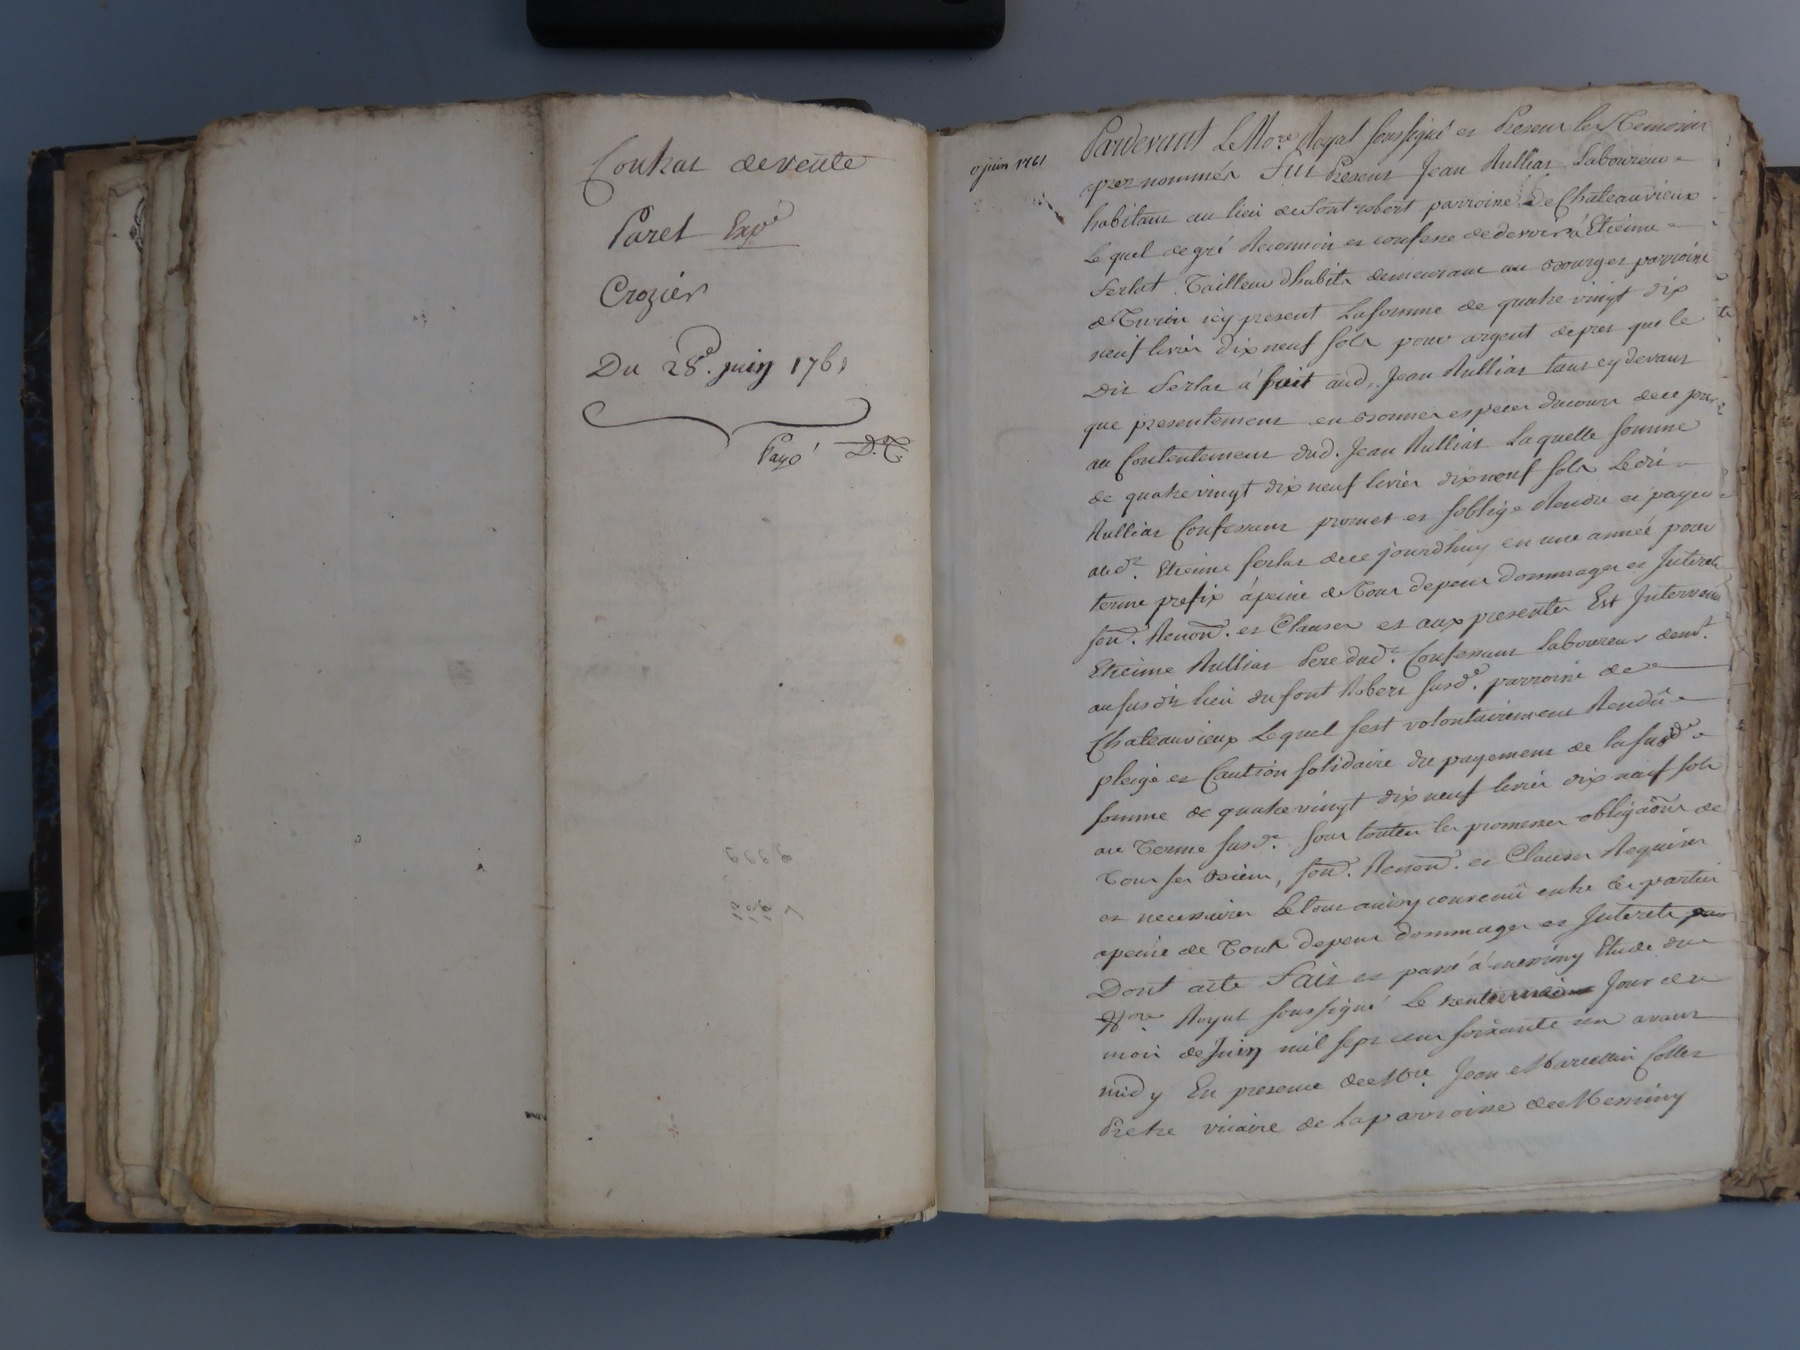 Contrat de vente
Paret Exp.é
Crozier
Du 28.e juin 1761
Payé D.T.
juin 1761
Pardevant Le No.re Royal soussigné et Present les Temoins
apres nommés Fut Present Jean Rulliat Laboureur
habitant au lieu de font robert parroisse de Chateauvieux
Lequel de gré Reconnoit et confesse de devoir à Etienne
Ferlat Tailleur d'habits demeurant au Bourg et parroisse
de Turin icy present La somme de quatre vingt dix
neuf livres dix neuf sols pour argent de pret que le
dit Ferlat à fait aud. Jean Rulliat tant cy devant
que presentement en bonnes especes du cours de ce
au Contentement dud. Jean Rulliat Laquelle somme
de quatre vingt dix neuf livres dix neuf sols Ledit
Rulliat Confessant promet et s'oblige Rendre et payer
aud.t Etienne ferlat de ce jourdhuy en une année pour
terme prefix à peine de Tous depens dommages et Interets
soud. Renon. et Clauses et aux presentes Est Intervenu
Etienne Rulliat Pere dud.t Confessant Laboureur dem.t
au susdit lieu du font Robert susd.e parroisse de
Chateauvieux Lequel s'est volontairement Rendû
pleige et Caution solidaire du payement de la susd.e
somme de quatre vingt dix neuf livres dix neuf sols
au Terme susd.t sous toutes les promesses obligaons de
Tous ses Biens, soud. Renon. et Clauses Requises
et necessaires Le tout ainsy convenû entre les parties
a peine de Tout depens dommages et Interets
Dont acte Fait et passé à messimy Etude du
No.re Royal soussigné Le trentieme Jour du
mois de Juin mil sept cent soixante un avant
midy En presence de M.re Jean Marcellin Collet
Pretre vicaire de La parroisse de Messimy